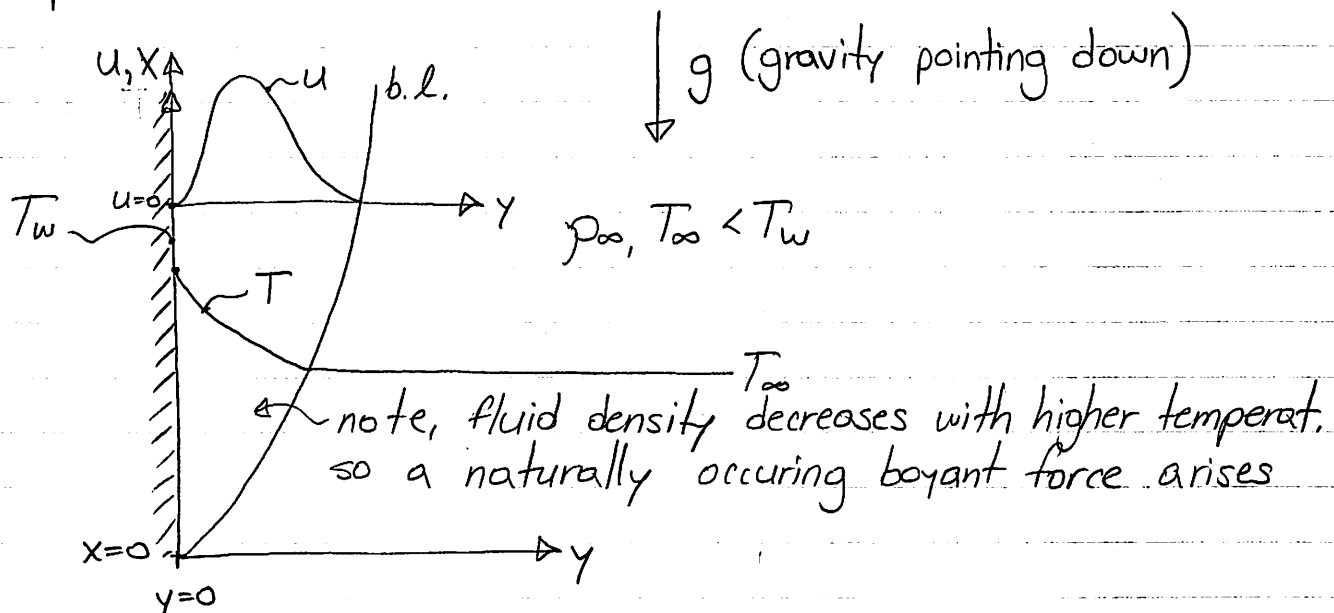 g (gravity pointing down)
u, x
u
b.l.
u=0
y
Tw
ρ∞, T∞ < Tw
T
T∞
note, fluid density decreases with higher temperat.
so a naturally occuring boyant force arises
x=0
y
y=0